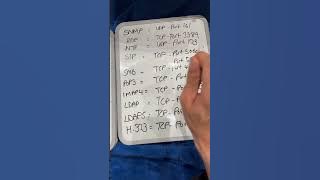 SNMP : UDP - Port 161
RDP = TCP - Port 3389
NTP = UDP - Port 123
SIP = TCP - Port
Port
SMB = TCP - Port
POP3 = TCP - Port
IMAP4 = TCP - Port
LDAP = TCP - Port
LDAPS = TCP - Port
H.323 = TCP - Port